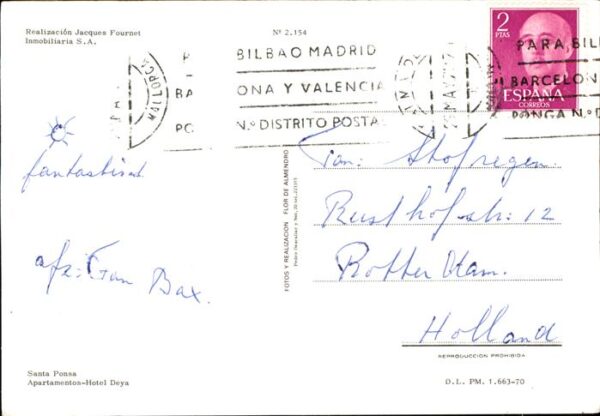 Realización Jacques Fournet
Inmobiliaria S.A.
Nº 2.154
2
PTAS
ESPAÑA
CORREOS
BILBAO MADRID
ONA Y VALENCIA
N.º DISTRITO POSTAL
PARA BIL
BARCELON
PONGA N.º D
fantastisch
afz: Bax.
Fam.
Rusthofstr: 12
Rotterdam.
Holland
FOTOS Y REALIZACION FLOR DE ALMENDRO
REPRODUCCION PROHIBIDA
Santa Ponsa
Apartamentos-Hotel Deya
D.L. PM. 1.663-70